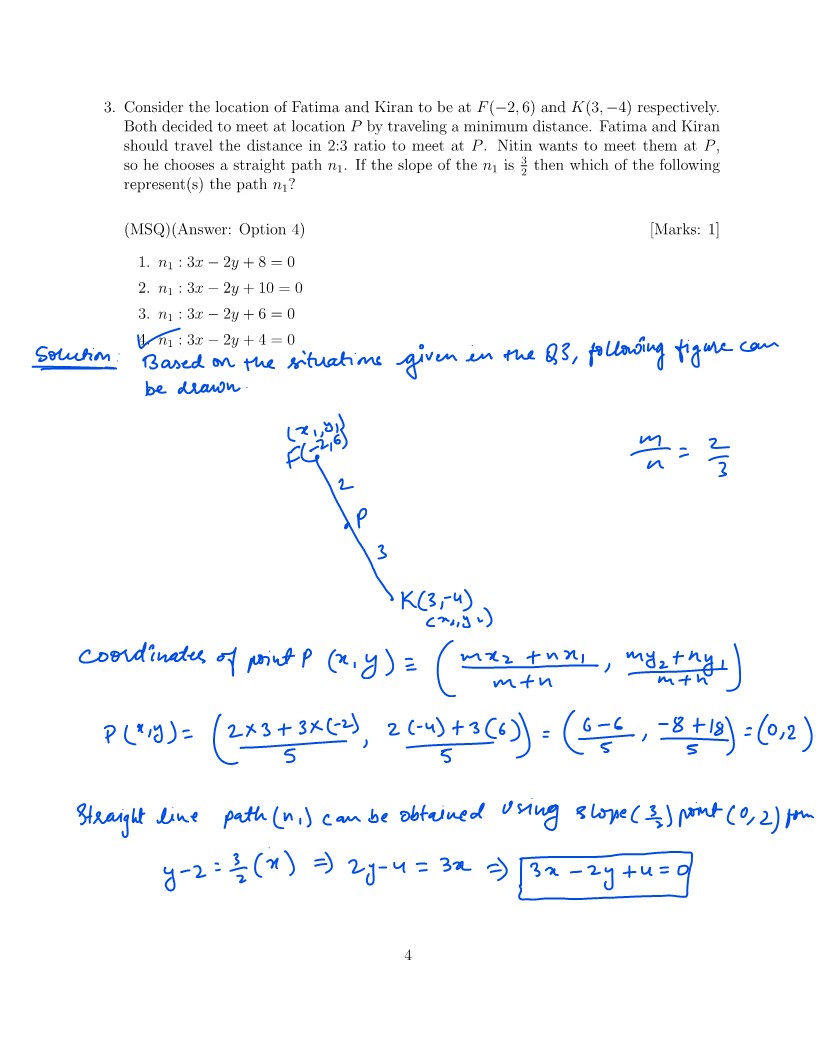 3. Consider the location of Fatima and Kiran to be at F(−2, 6) and K(3, −4) respectively.
Both decided to meet at location P by traveling a minimum distance. Fatima and Kiran
should travel the distance in 2:3 ratio to meet at P. Nitin wants to meet them at P,
so he chooses a straight path n₁. If the slope of the n₁ is 3/2 then which of the following
represent(s) the path n₁?
(MSQ)(Answer: Option 4) [Marks: 1]
1. n₁ : 3x − 2y + 8 = 0
2. n₁ : 3x − 2y + 10 = 0
3. n₁ : 3x − 2y + 6 = 0
4. n₁ : 3x − 2y + 4 = 0
Solution: Based on the situations given in the Q3, following figure can
be drawn.
(x₁, y₁)
F(-2,6)
m/n = 2/3
2
P
3
K(3,-4)
(x₂, y₂)
Coordinates of point P (x, y) ≡ ((mx₂ + nx₁)/(m+n), (my₂ + ny₁)/(m+n))
P(x,y) = ((2×3 + 3×(-2))/5, (2(-4) + 3(6))/5) = ((6-6)/5, (-8+18)/5) = (0,2)
Straight line path (n₁) can be obtained using slope (3/2) point (0,2) form
y-2 = 3/2 (x) ⇒ 2y-4 = 3x ⇒ 3x - 2y + 4 = 0
4